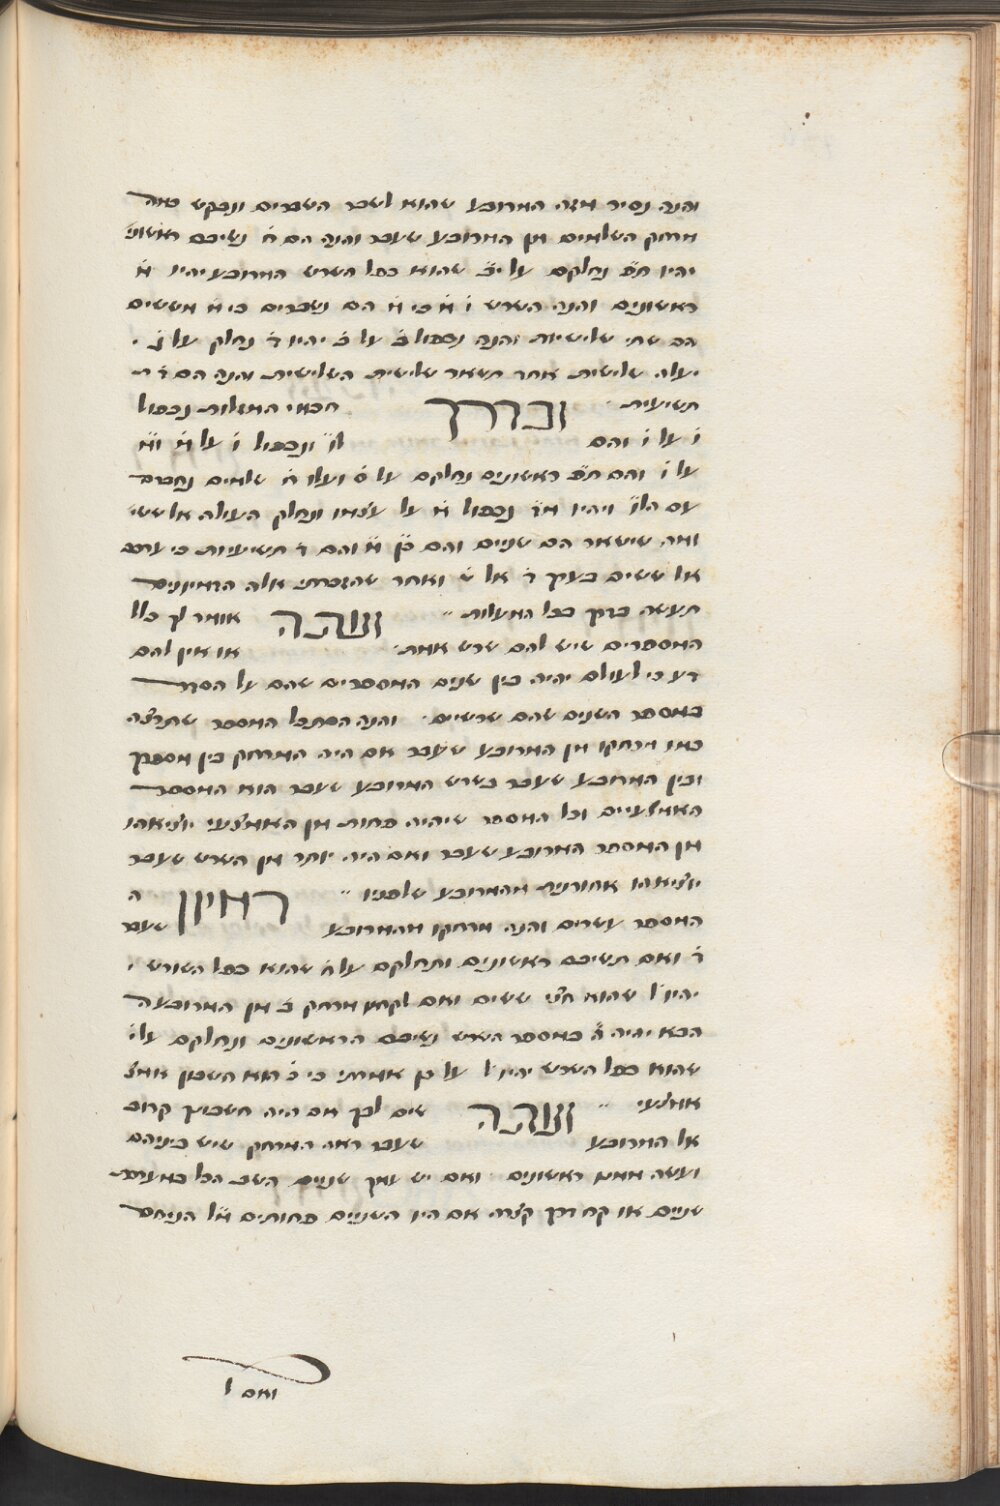 והנה נסיר מזה המרובע שהוא לשבר השברים ונבקש כמה
מרחק השלמים מן המרובע שעבר והנה הם ח׳ נשיבם ראשוני׳
יהיו ת״פ נחלקם על י״ב שהוא כפל השרש המרובע יהיו מ׳
ראשונים והנה השרש ו׳ מ׳ כי מ׳ הם נשברים כי מ׳ מששים
הם שתי שלישיות והנה נכפול ב׳ על ב׳ יהיו ד׳ נחלק על ג׳
יעלה שלישית אחד תשאר שלישית השלישית והנה הם ד׳ ת
תשיעית ובדרך חכמי המזלות נכפול
ו׳ על ו׳ והם ל״ו ונכפול ו׳ על מ׳ ומ׳
על ו׳ והם ת״פ ראשונים נחלקם על ס׳ ועלו ח׳ שלמים נחברם
עם הל״ו ויהיו מ״ד נכפול מ׳ על עצמו ונחלק העולה אל ששי׳
ומה שישאר הם שניים והם מ׳ והם ד׳ תשיעיות כי ערכם
אל ששים כערך ד׳ אל ט׳ ואחר שהזכרתי אלה הדמיונים
תעשה כדרך בכל המעלות ועתה אומר לך כלל
המספרים שיש להם שרש אמתי או אין להם
דע כי לעולם יהיה בין שנים המספרים שהם על הסדר
כמספר השנים שהם שרשים והנה הסתכל המספר שתרצה
כמו מרחקו מן המרובע שעבר אם היה המרחק בין מספרך
ובין המרובע שעבר כשרש המרובע שעבר הוא המספר
האמצעיים וכל המספר שיהיה פחות מן האמצעי יוציאהו
מן המספר המרובע שעבר ואם היה יותר מן השרש שעבר
יוציאהו אחורנית מהמרובע שלפניו דמיון ה
המספר עשרים והנה מרחקו מהמרובע שעבר
ד׳ ואם תשיבם ראשונים ותחלקם על ח׳ שהוא כפל השורש
יהיו ל׳ שהוא חצי ששים ואם לקחנו מרחק כ׳ מן המרובע ה
הבא יהיה ה׳ כמספר השרש נשיבם הראשונים ונחלקם על י׳
שהוא כפל השרש יהיו ל׳ על כן אמרתי כי כ׳ הוא חשבון אמצ
אמצעי ועתה שים לבך אם היה חשבונך קרוב
אל המרובע שעבר ראה המרחק שיש ביניהם
ועשה ממנו ראשונים ואם יש עמך שניים השב הכל במערכת
שניים או קח דרך קצרה אם היו השניים פחותים מל׳ הניחם
ואם ל